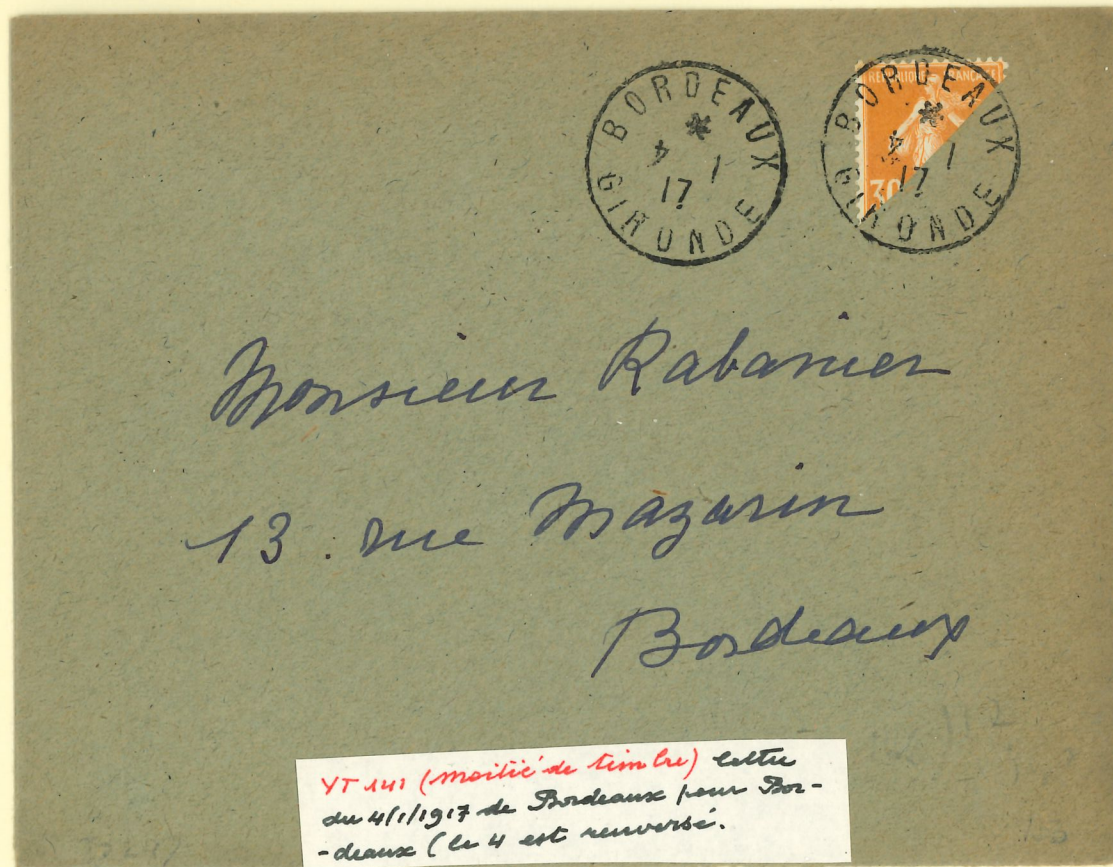 BORDEAUX
4 1
17
GIRONDE
REPUBLIQUE FRANÇAISE
BORDEAUX
4 1
17
30
GIRONDE
Monsieur Rabanier
13. rue Mazarin
Bordeaux
112
YT 141 (moitié de timbre) lettre
du 4/1/1917 de Bordeaux pour Bor-
-deaux (le 4 est renversé.